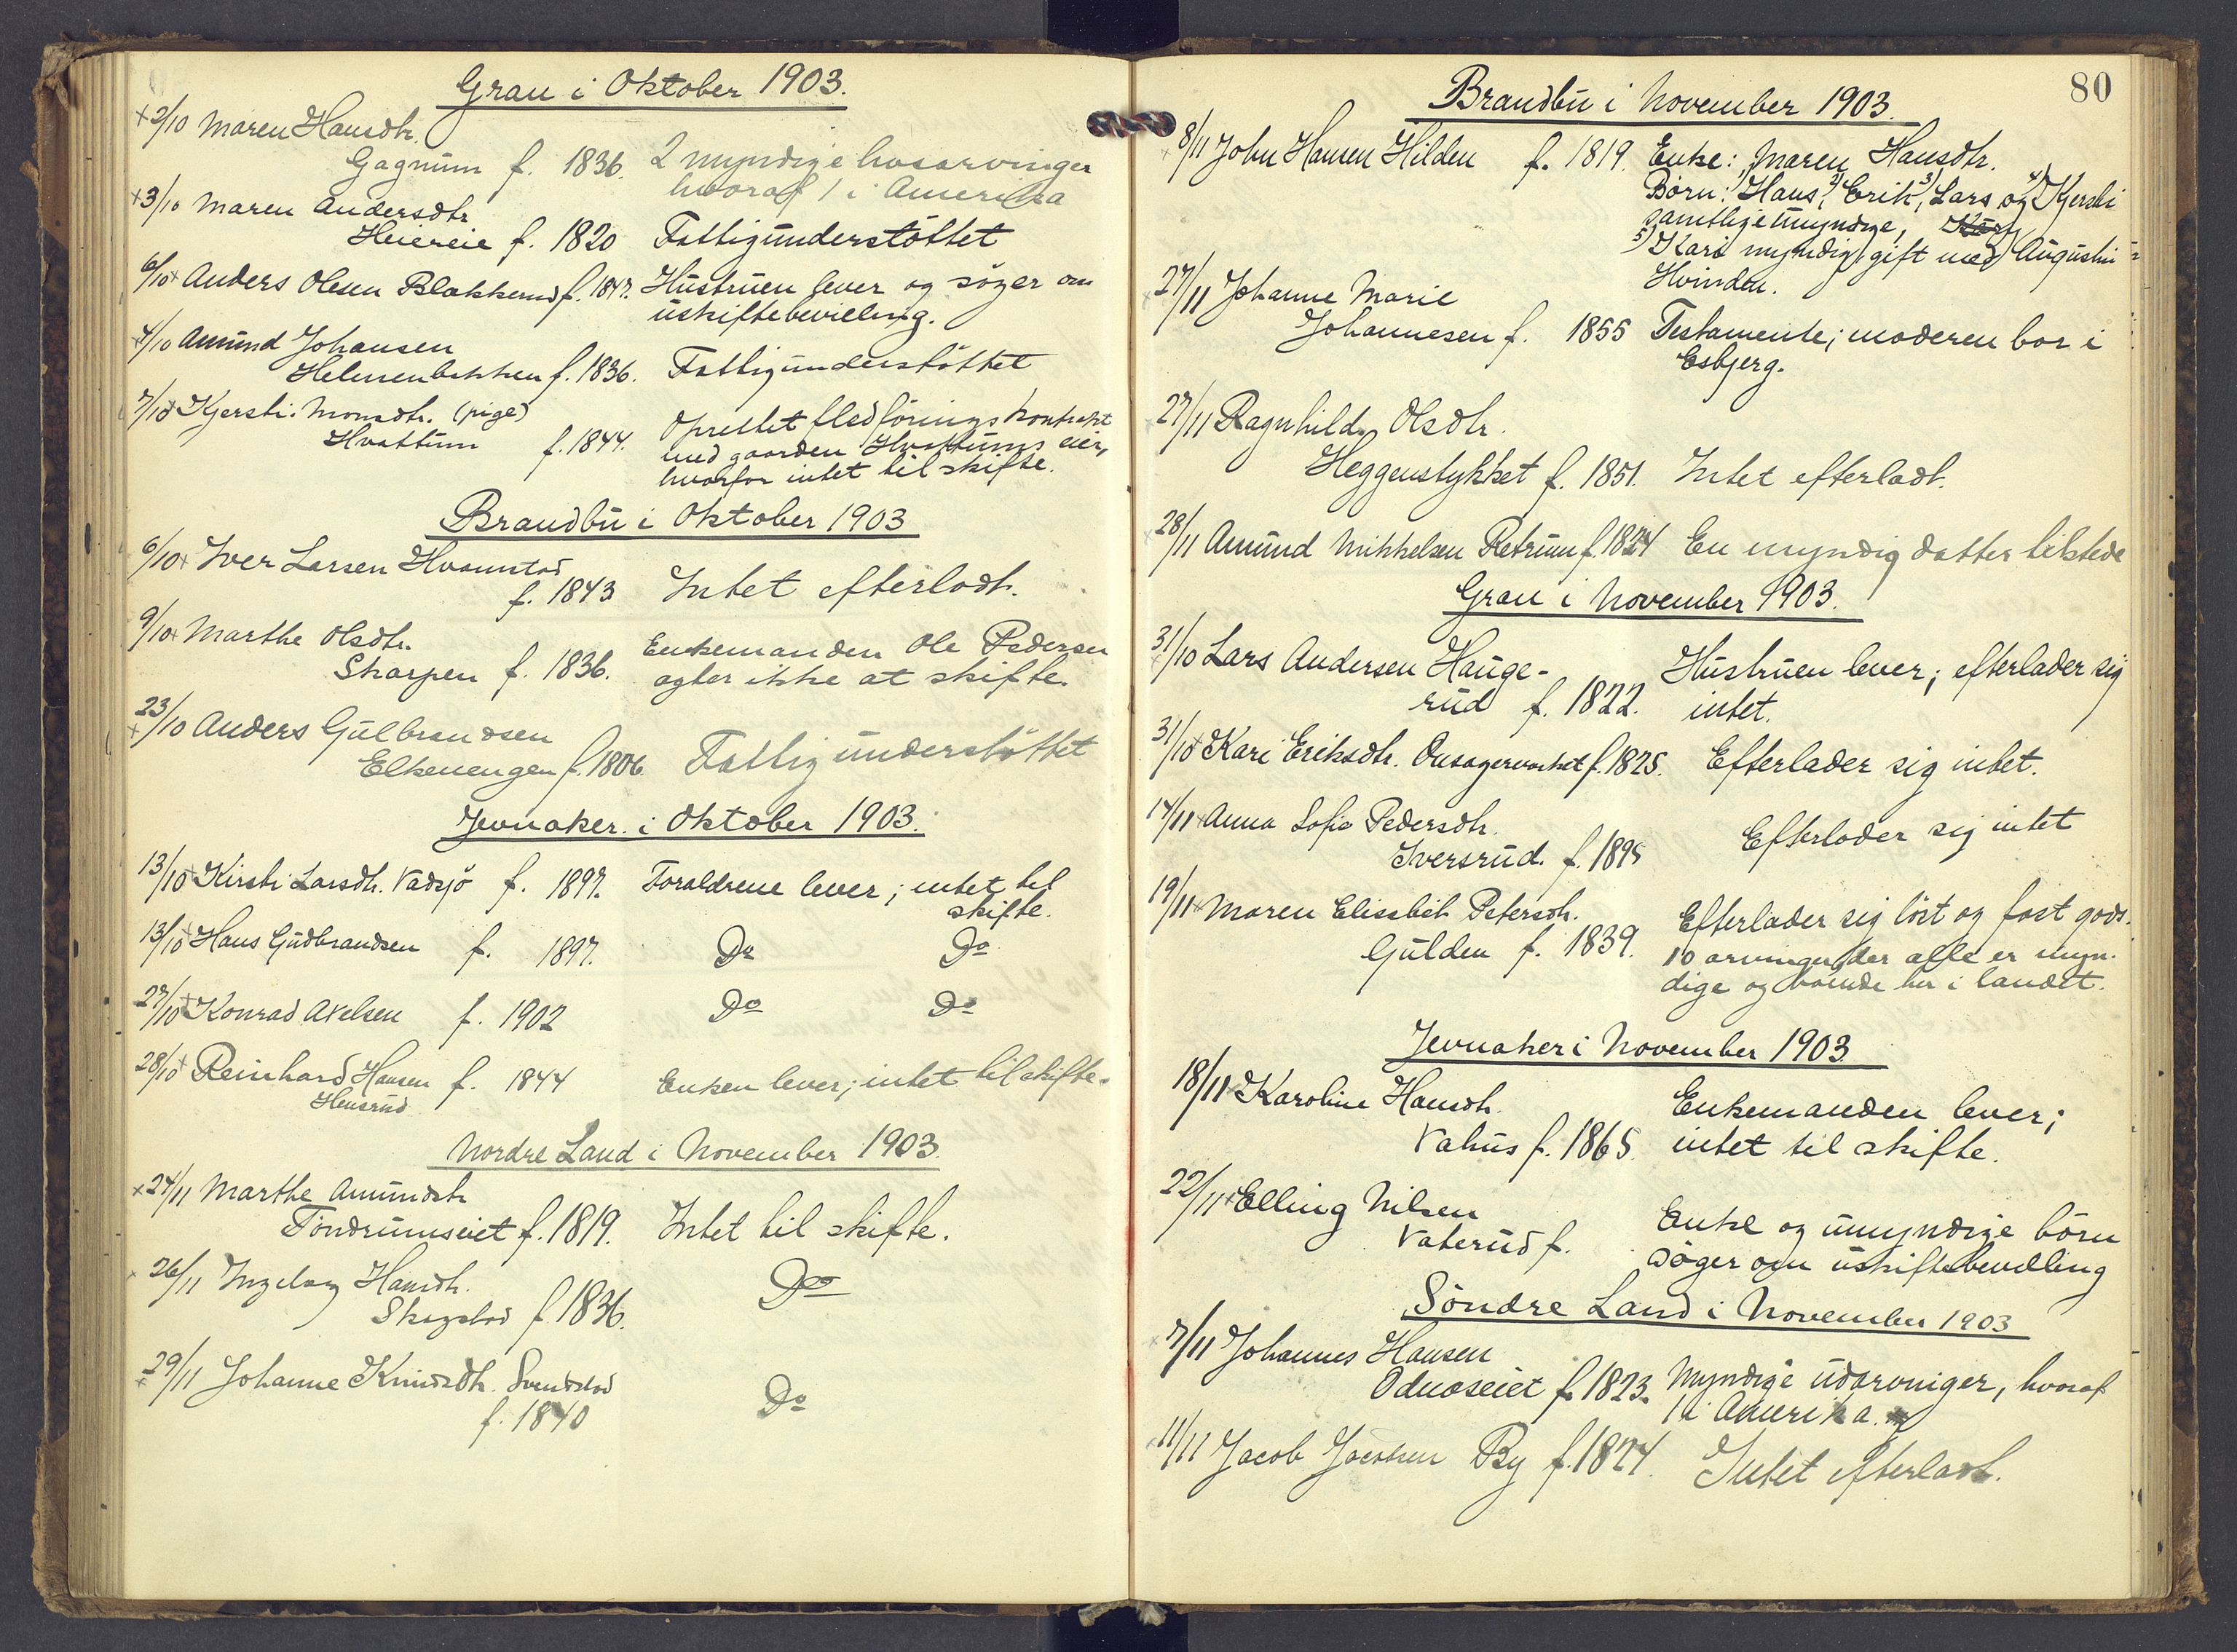 Gran i Oktober 1903.
+2/10 Maren Hansdtr.
Gagnum f. 1836. 2 myndige livsarvinger
hvoraf 1 i Amerika
+3/10 Maren Andersdtr
Heiereie f. 1820 Fattigunderstöttet
6/10+ Anders Olesen Blakkerud f. 1847. Hustruen lever og söger om
uskiftebevilling.
+4/10 Amund Johansen
Helmenbakken f. 1836. Fattigunderstöttet
7/10+ Kjersti Monsdtr. (pige)
Hvattum f. 1844. Oprettet Fledföringskontrakt
med gaarden Hvattums eier,
hvorfor intet til skifte.
Brandbu i Oktober 1903
6/10+ Iver Larsen Hvamstad
f. 1843 Intet efterladt.
9/10+ Marthe Olsdtr.
Skarpen f. 1836. Enkemanden Ole Pedersen
agter ikke at skifte.
23/10 + Anders Gulbrandsen
Elkenengen f. 1806. Fattigunderstöttet
Jevnaker i Oktober 1903.
13/10+ Kirsti Larsdtr. Vadsjö f. 1897. Foraldrene lever; intet til
skifte.
13/10+ Hans Gudbrandsen f. 1897. Do Do
27/10+ Konrad Axelsen f. 1902 Do Do
28/10+ Reinhard Hansen f. 1844 Enken lever; intet til skifte.
Hensrud
Nordre Land i November 1903.
+24/11 Marthe Amundsdtr
Tondrumseiet f. 1819. Intet til skifte.
26/11 Ingeborg Hansdtr.
Skogstad f 1836. Do
+29/11 Johanne Knudsdtr. Svendstad
f. 1840 Do
80
Brandbu i November 1903.
+8/11 John Hansen Hilden f. 1819. Enke: Maren Hansdtr.
Börn: 1) Hans, 2) Erik, 3) Lars og 4) Kjersti
samtlige umyndige, Kari
5) Kari myndig gift med Augustin
Hvinden.
+27/11 Johanne Marie
Johannesen f. 1855 Testamente; moderen bor i
Esbjerg.
+27/11 Ragnhild Olsdtr.
Heggenstykket f. 1851. Intet efterladt.
+28/11 Amund Mikkelsen Retrum f. 1824 En myndig datter tilstede
Gran i November 1903.
31/10 + Lars Andersen Hauge-
rud f. 1822. Hustruen lever; efterlader sig
intet.
31/10+ Kari Eriksdtr. f. 1825. Efterlader sig intet.
14/11+ Anna Sofie Pedersdtr.
Iversrud. f. 1895 Efterlader sig intet
19/11+ Maren Elisabet Petersdtr.
Gulden f. 1839. Efterlader sig löst og fast gods.
10 arvinger, der alle er myn-
dige og boende her i landet.
Jevnaker i November 1903
18/11+ Karoline Hansdtr.
Vahus f. 1865. Enkemanden lever;
intet til skifte.
22/11+ Elling Nilsen
Vaterud f. Enke og umyndige börn
söger om uskiftebevilling
Söndre Land i November 1903
+7/11 Johannes Hansen
Odnæseiet f. 1823. Myndige udarvinger, hvoraf
1 i Amerika.
+11/11 Jacob Jacobsen By f. 1824. Intet efterladt.